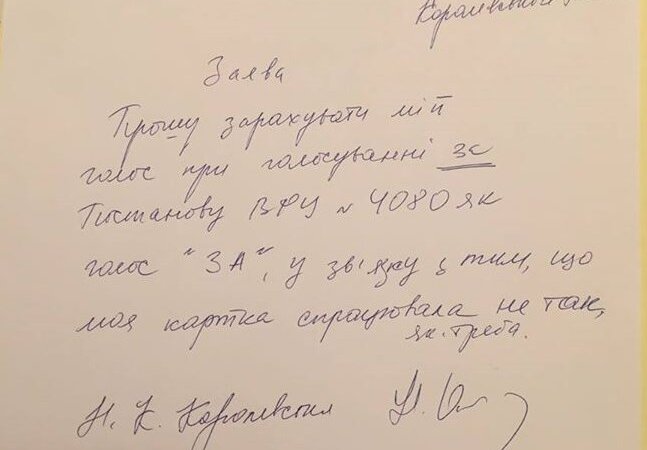 Заява
Прошу зарахувати мій
голос при голосуванні за
Постанову ВРУ № 4080 як
голос "ЗА", у зв'язку з тим, що
моя картка спрацювала не так,
як треба.
Н. Ю. Королевська